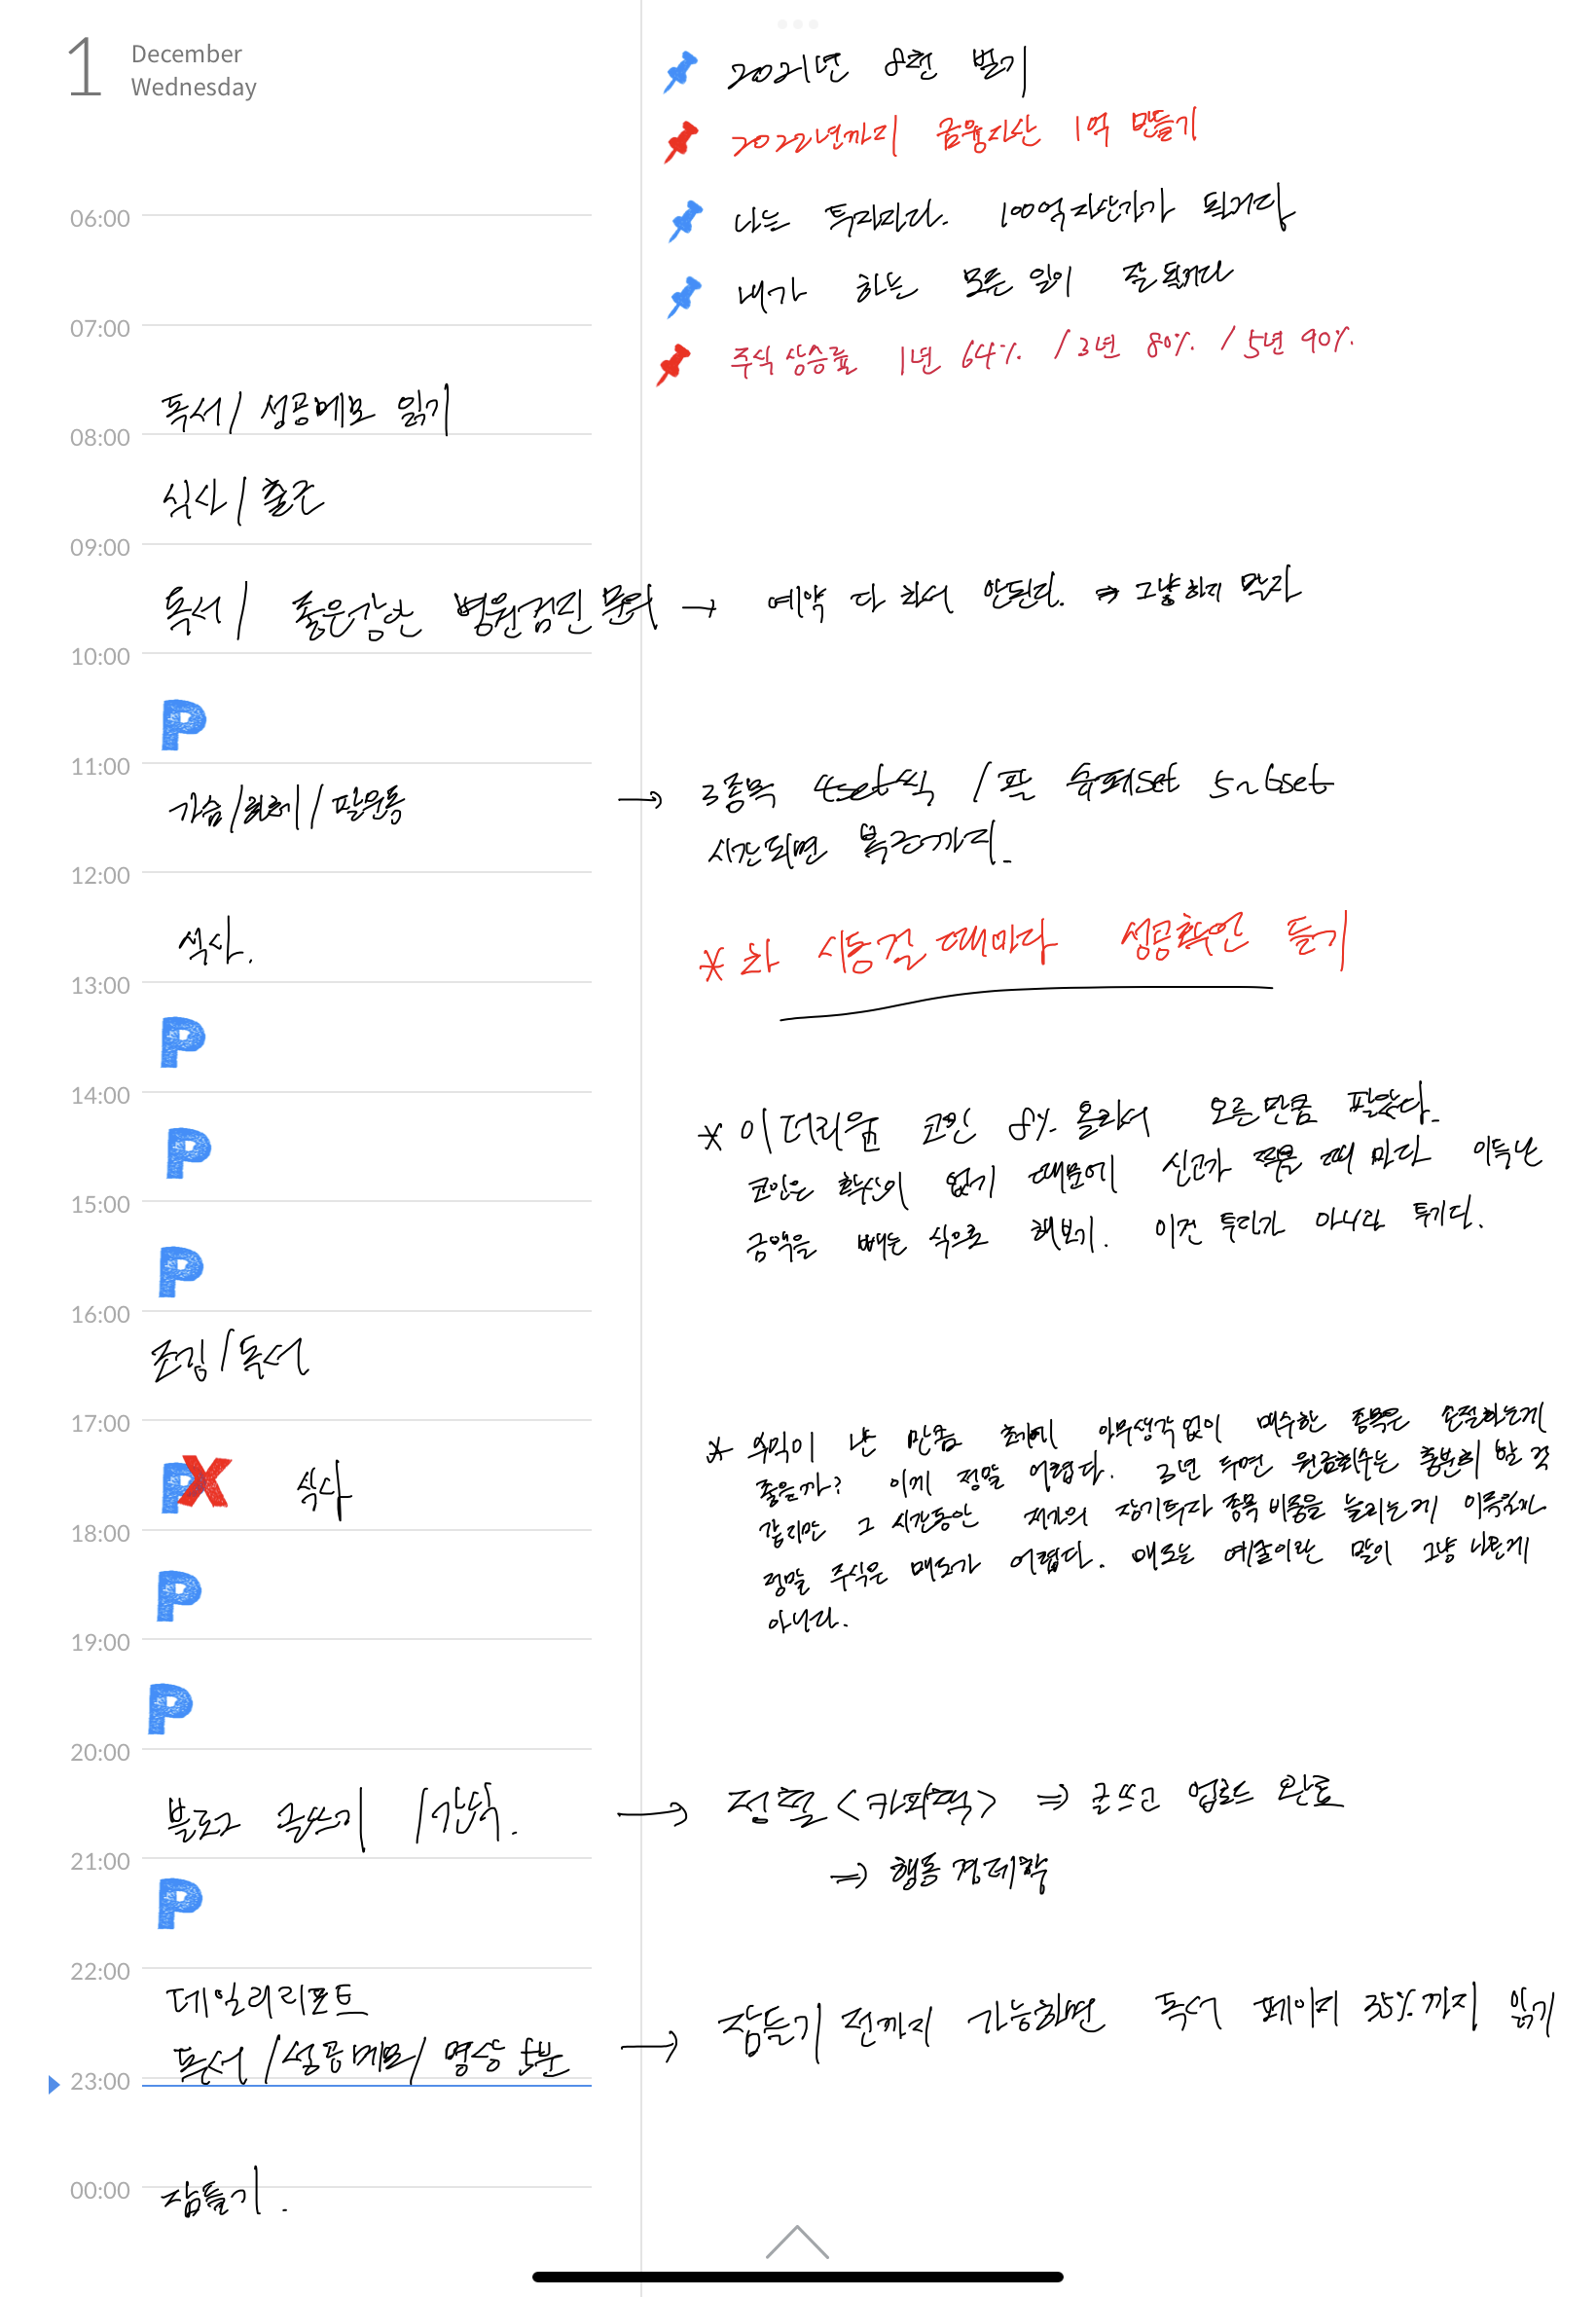 1
December
Wednesday
2021년 8천 벌기
2022년까지 금융자산 1억 만들기
나는 투자자다. 100억자산가가 될거다
내가 하는 모든 일이 잘 될거다
주식 상승률 1년 64% / 3년 80% / 5년 90%.
06:00
07:00
독서 / 성공메모 읽기
08:00
식사 / 출근
09:00
독서 / 좋은강안 병원검진 문의 → 예약 다 차서 안된다. ⇒ 그냥하지 말자
10:00
P
11:00
가슴 / 하체 / 팔운동 → 3종목 4set씩 / 팔 슈퍼set 5~6set
시간되면 복근까지.
12:00
식사.
* 차 시동걸 때마다 성공확언 듣기
13:00
P
14:00
* 이더리움 코인 8% 올라서 오른만큼 팔았다.
P
코인은 확신이 없기 때문에 신고가 찍을 때 마다 이득난
15:00
금액을 빼는 식으로 해보기. 이건 투자가 아니라 투기다.
P
16:00
조깅 / 독서
17:00
* 수익이 난 만큼 초기에 아무생각없이 매수한 종목은 손절하는게
좋을까? 이게 정말 어렵다. 3년 두면 원금회수는 충분히 할 것
P X 식사
같지만 그 시간동안 저가의 장기투자 종목 비중을 늘리는게 이득일까
18:00
정말 주식은 매도가 어렵다. 매도는 예술이란 말이 그냥 나온게
아니다.
P
19:00
P
20:00
블로그 글쓰기 / 간식. → 정철 <카피책> ⇒ 글쓰고 업로드 완료
21:00
⇒ 행동경제학
P
22:00
데일리리포트
독서 / 성공메모 / 영상 5분 → 잠들기 전까지 가능하면 독서 페이지 35%까지 읽기
23:00
00:00
잠들기.